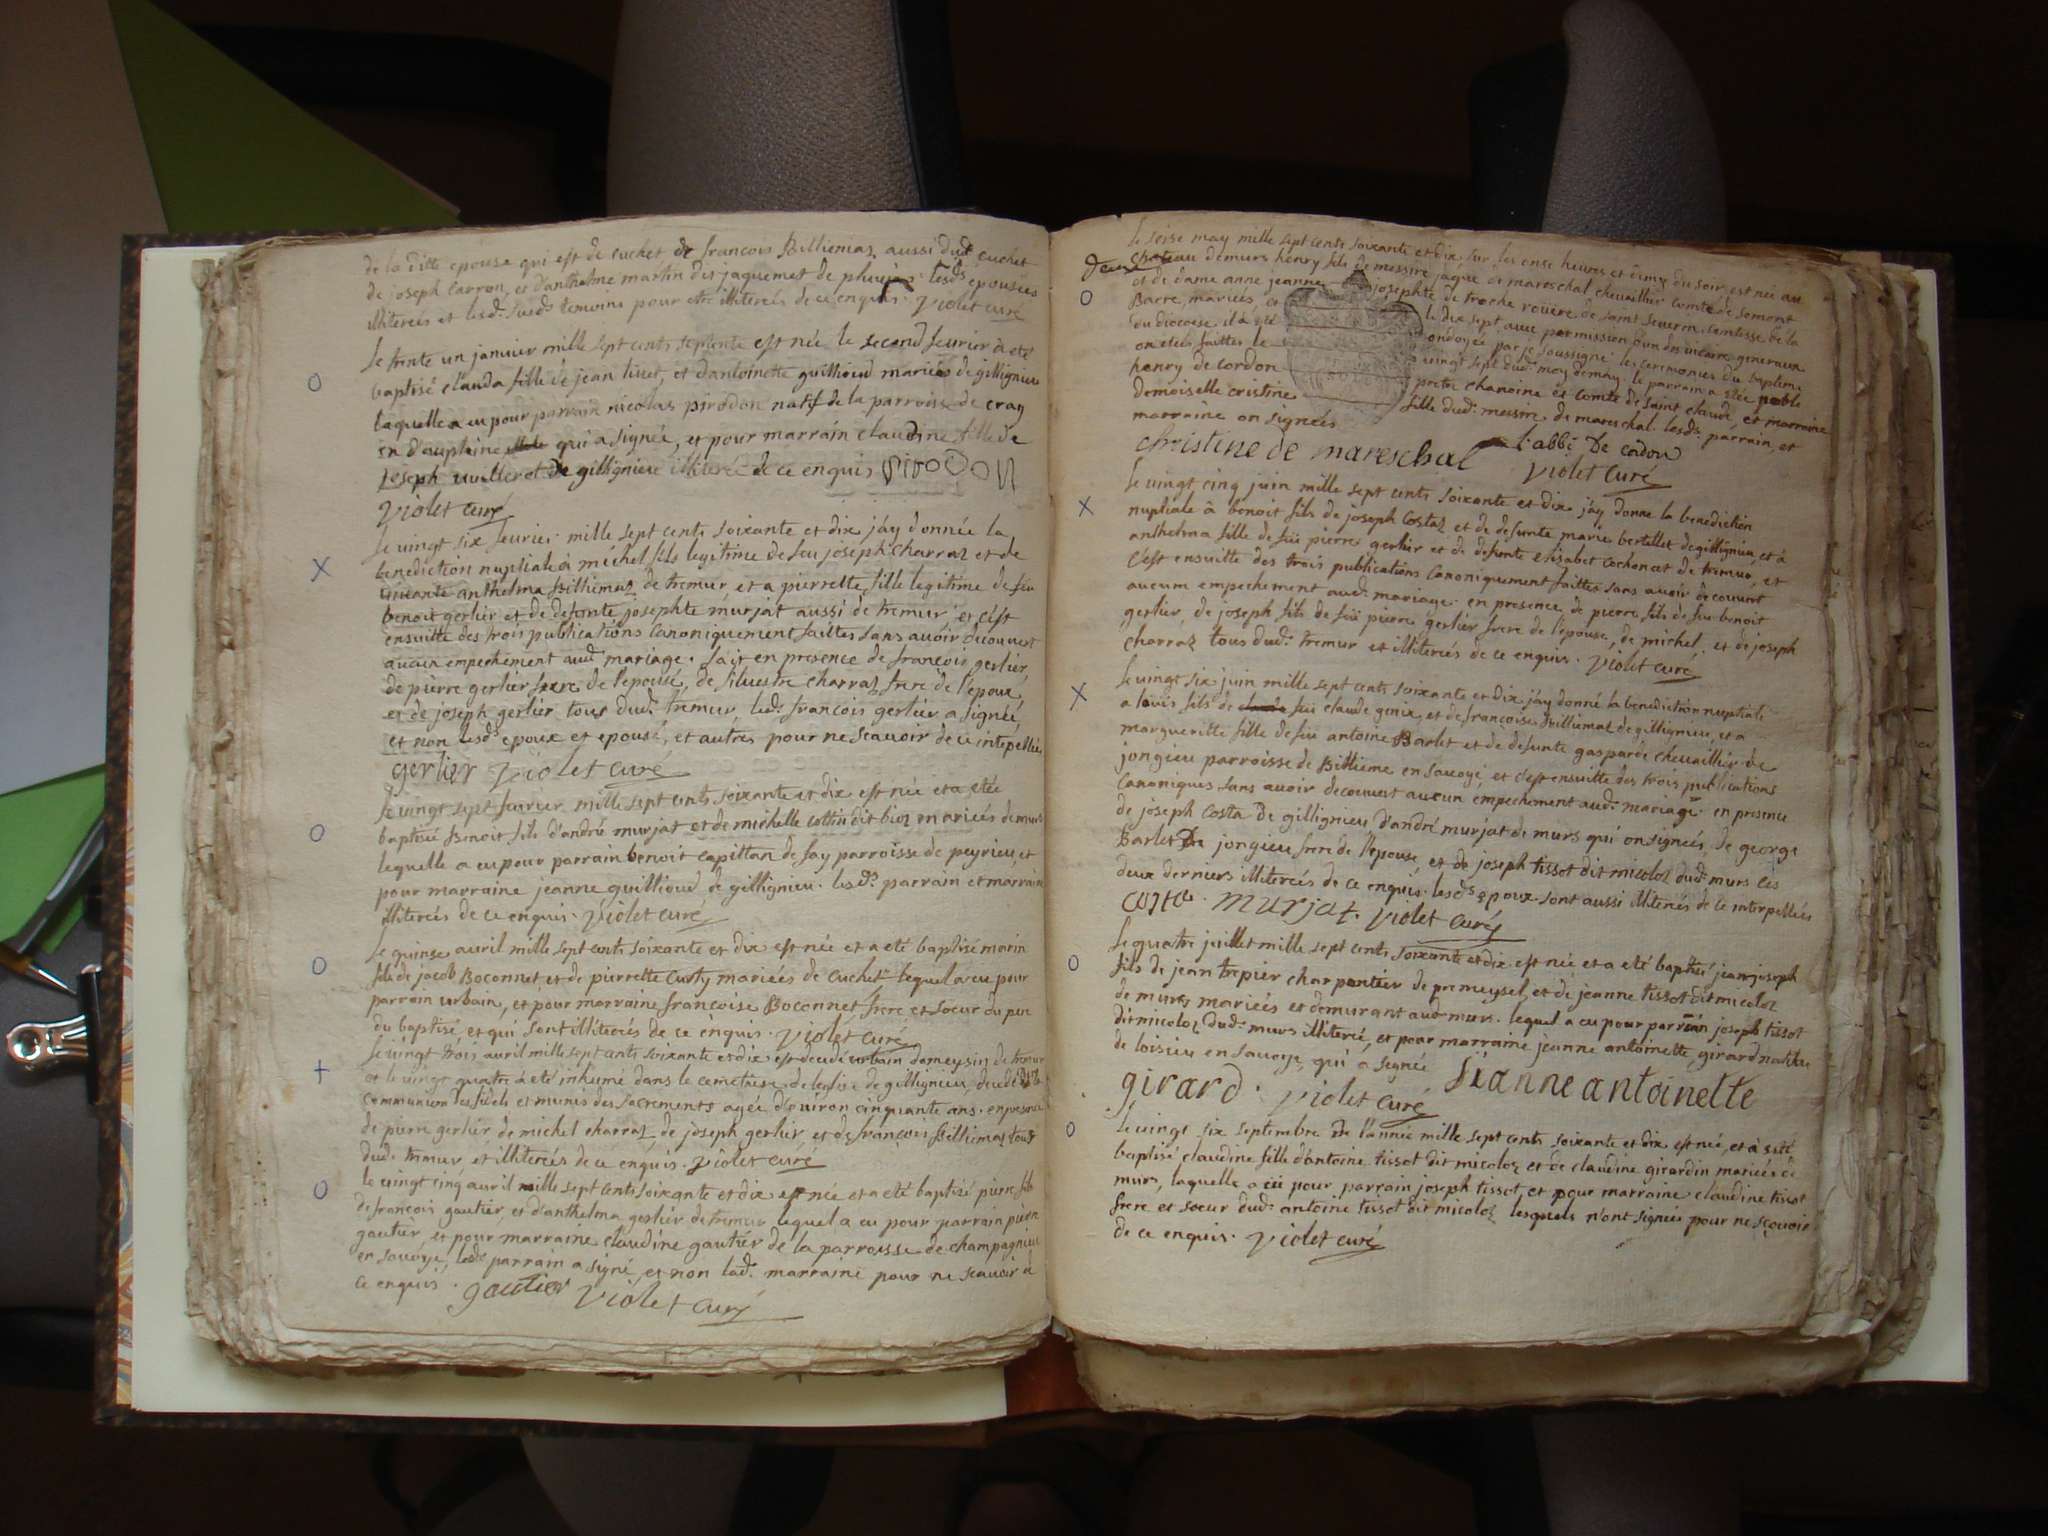 de la ditte epouse qui est de cuchet de francois Billiemaz aussi dud cuchet
de joseph Carron, et d'anthelme martin dit jaquemet de lesds epousés
illiterés et lesd. susds temoins pour etre illiterés de ce enquis. violet curé
le trente un janvier mille sept cents septente est née le second fevrier à eté
baptisé clauda fille de jean tiset, et d'antoinette guillioud mariés de gillignieu
laquelle a eu pour parrain nicolas pirodon natif de la parroisse de cray
en dauphine qui a signée, et pour marrain claudine fille de
joseph vuillerot de gillignieu illiteré de ce enquis PIRODON
violet curé
le vingt six fevrier mille sept cents soixante et dix j'ay donnée la
benediction nuptiale à michel fils legitime de feu joseph charraz et de
vivante anthelma Billiemaz de tremur, et a pierrette fille legitime de feu
benoit gerlier et de defunte josephte murjat aussi de tremur et c'est
ensuitte des trois publications canoniquement faittes sans avoir decouvert
aucun empechement aud. mariage. fait en presence de francois gerlier
de pierre gerlier frere de l'epouse, de silvestre charraz frere de l'epoux
et de joseph gerlier tous dud. tremur, led. francois gerlier a signéé,
et non lesds epoux et epouse, et autres pour ne scavoir de ce interpellés
gerlier violet curé
le vingt sept fevrier mille sept cents soixante et dix est née et a etée
baptisé Benoit fils d'andré murjat et de michelle cottin dit bioz mariés de murs
lequelle a eu pour parrain benoit capittan de fay parroisse de peyrieu, et
pour marraine jeanne guillioud de gillignieu. lesds. parrain et marraine
illiterés de ce enquis. violet curé
le quinse avril mille sept cents soixante et dix est née et a eté baptisé marin
fils de jacob Boconnet, et de pierrette Curty mariés de cuchet lequel a eu pour
parrain urbain, et pour marraine francoise Boconnet frere et soeur du pere
du baptisé, et qui sont illiterés de ce enquis. violet curé
le vingt trois avril mille sept cents soixante et dix est decedé urbain dameysin de tremur
et le vingt quatre à eté inhumé dans le cemetiere de l'eglise de gillignieu, decedé
communion des fidels et munis des sacrements agée d'environ cinquante ans. en presence
de pierre gerlier, de michel charraz, de joseph gerlier, et de francois Billiemaz tous
dud. tremur et illiterés de ce enquis. violet curé
le vingt cinq avril mille sept cents soixante et dix est née et a eté baptisé pierre fils
de francois gautier, et d'anthelma gerlier de tremur lequel a eu pour parrain pierre
gautier, et pour marraine claudine gautier de la parroisse de champagnieu
en savoye, leds parrain a signé, et non lad. marraine pour ne scavoir de
ce enquis. gautier violet curé
le seise may mille sept cents soixante et dix sur les onse heures et demy du soir est née au
chateau de murs henry fils de messire jaque de mareschal chevaillier comte de somont
deux
et de dame anne jeanne josephte de troche rouëre de saint severin comtesse de la
Barre, mariés, et le dix sept avec permission d'un des vicaires generaux
du diocese il à eté ondoyée par je soussigné les ceremonies du baptême
on etés faittes le vingt sept dud. may le parrain a etée noble
henry de cordon pretre chanoine et comte de saint claude, et marraine
demoiselle cristine fille dud. messire de mareschal. lesds. parrain, et
marraine on signées
christine de mareschal l'abbé De cordon
violet curé
le vingt cinq juin mille sept cents soixante et dix j'ay donne la benediction
nuptiale à benoit fils de joseph costaz et de defunte marie bertellet de gillignieu, et à
anthelma fille de feü pierre gerlier et de defunte elisabet cochonet de tremur, et
c'est ensuitte des trois publications canoniquement faittes sans avoir decouvert
aucum empechement aud. mariage. en presence de pierre fils de feu benoit
gerlier, de joseph fils de feü pierre gerlier frere de l'epouse, de michel, et de joseph
charraz tous dud. tremur et illiterés de ce enquis. violet curé
le vingt six juin mille sept cents soixante et dix j'ay donné la benediction nuptiale
a lovis fils de feü claude genix, et de francoise Billiemaz de gillignieu, et a
margueritte fille de feü antoine Barlet et de defunte gasparde chevaillier de
jongieu parroisse de Billieme en savoye, et c'est ensuitte des trois publications
canoniques sans avoir decouvert aucun empechement aud. mariage en presence
de joseph costa de gillignieu d'andré murjat de murs qui on signéés, de george
Barlet De jongieu frere de l'epouse, et de joseph tissot dit micoloz dud. murs ces
deux derniers illiterés de ce enquis. lesds epoux sont aussi illiterés de ce interpellés
costa. murjat. violet curé
le quatre juillet mille sept cents soixante et dix est née et a eté baptisé jean joseph
fils de jean trepier charpantier de premeysel, et de jeanne tissot dit micoloz
de murs mariés et demurant aud. murs. lequel a eu pour parrain joseph tissot
dit micoloz dud. murs illiteré, et pour marraine jeanne antoinette girard native
de loisieu en savoye, qui a signée jeanne antoinette
girard. violet curé
le vingt six septembre de l'année mille sept cents soixante et dix est née, et à eté
baptisé claudine fille d'antoine tissot dit micoloz et de claudine girardin mariés de
murs, laquelle a eü pour parrain joseph tissot et pour marraine claudine tissot
frere et soeur dud. antoine tissot dit micoloz lesquels n'ont signés pour ne sçavoir
de ce enquis. violet curé